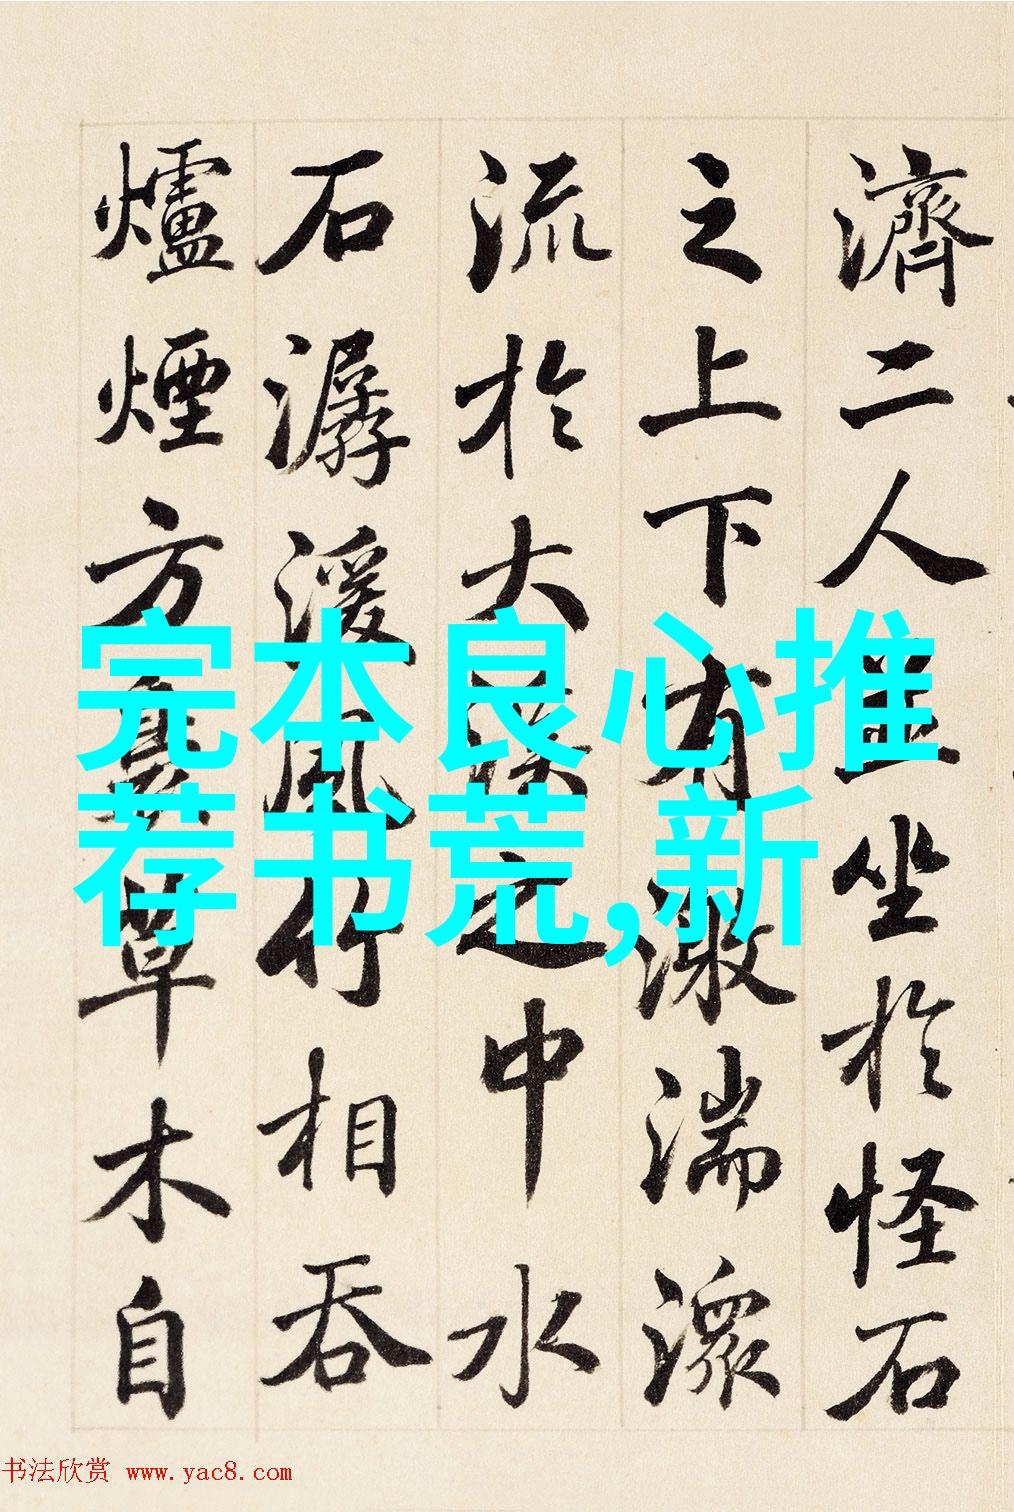 濟二人並坐於怪石
之上下有激湍潀
流於大溪之中水
石潺湲風竹相吞
爐煙方裊草木自
完本良心推
荐书荒,新
书法欣赏 www.yac8.com